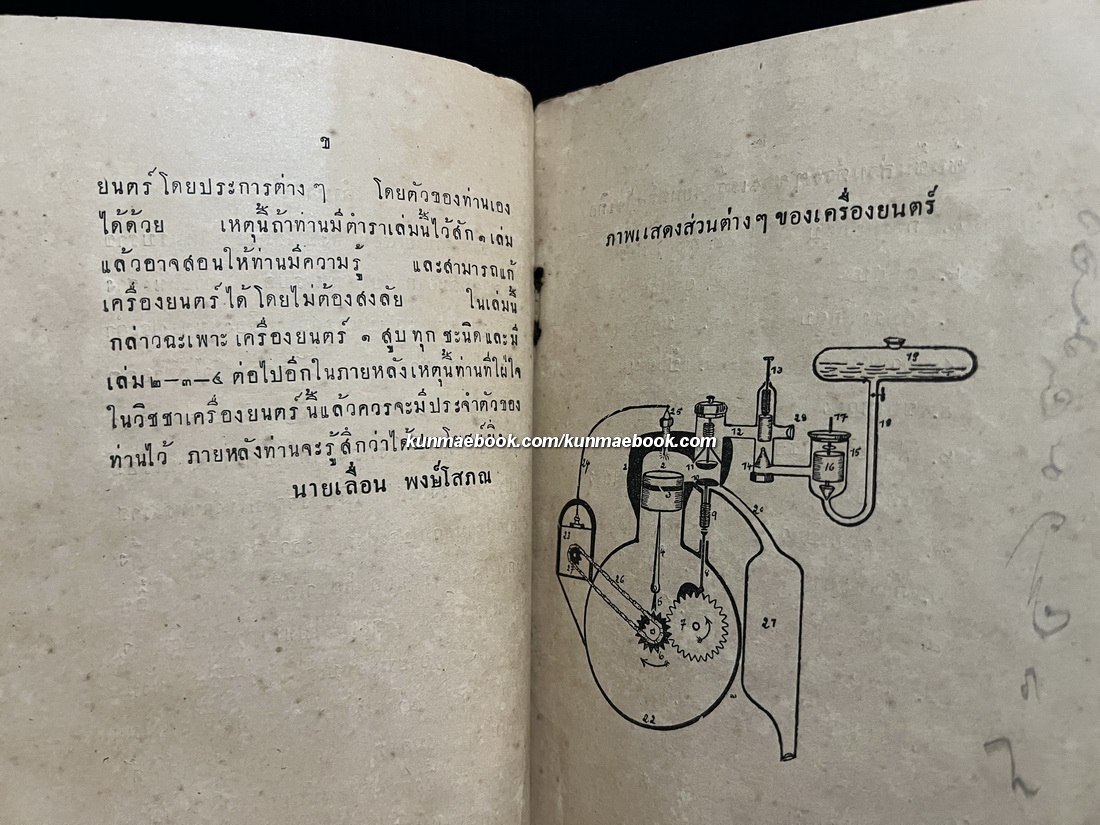 ข
ยนตร์ โดยประการต่าง ๆ โดยตัวของท่านเอง
ได้ด้วย เหตุนี้ถ้าท่านมีตำราเล่มนี้ไว้สัก ๑ เล่ม
แล้วอาจสอนให้ท่านมีความรู้ และสามารถแก้
เครื่องยนตร์ ได้ โดยไม่ต้องสงสัย ในเล่มนี้
กล่าวฉะเพาะ เครื่องยนตร์ ๑ สูบ ทุก ชะนิด และ มี
เล่ม ๒—๓—๔ ต่อไปอีกในภายหลัง เหตุนี้ท่านที่ใฝ่ใจ
ในวิชชาเครื่องยนตร์ นี้แล้วควรจะมีประจำตัวของ
ท่านไว้ ภายหลังท่านจะรู้สึกว่าได้
นายเลื่อน พงษ์โสภณ
kunmaebook.com/kunmaebook.com
ภาพแสดงส่วนต่าง ๆ ของเครื่องยนตร์
19
13
17
18
25
12
28
15
14
16
1
2
11
10
3
9
20
24
4
8
23
27
26
5
7
21
6
22